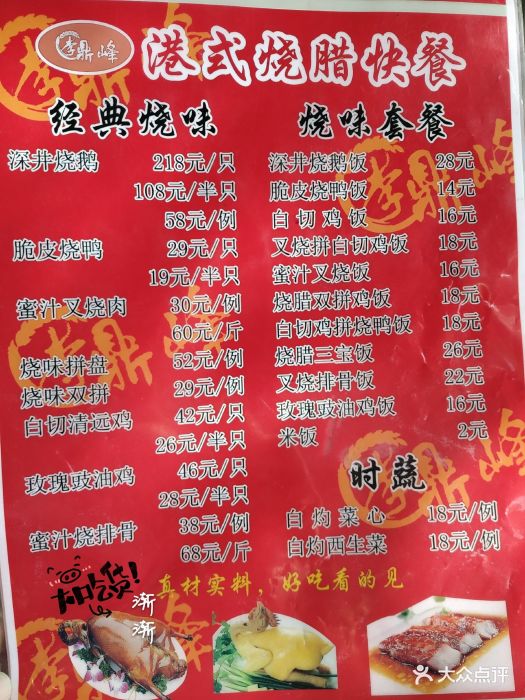 李鼎峰
港式烧腊快餐
经典烧味
深井烧鹅 218元/只
108元/半只
58元/例
脆皮烧鸭 29元/只
19元/半只
蜜汁叉烧肉 30元/例
60元/斤
烧味拼盘 52元/例
烧味双拼 29元/例
白切清远鸡 42元/只
26元/半只
玫瑰豉油鸡 46元/只
28元/半只
蜜汁烧排骨 38元/例
68元/斤
烧味套餐
深井烧鹅饭 28元
脆皮烧鸭饭 14元
白切鸡饭 16元
叉烧拼白切鸡饭 18元
蜜汁叉烧饭 16元
烧腊双拼鸡饭 18元
白切鸡拼烧鸭饭 18元
烧腊三宝饭 26元
叉烧排骨饭 22元
玫瑰豉油鸡饭 16元
米饭 2元
时蔬
白灼菜心 18元/例
白灼西生菜 18元/例
真材实料，好吃看的见
大吃货!
渐渐
大众点评